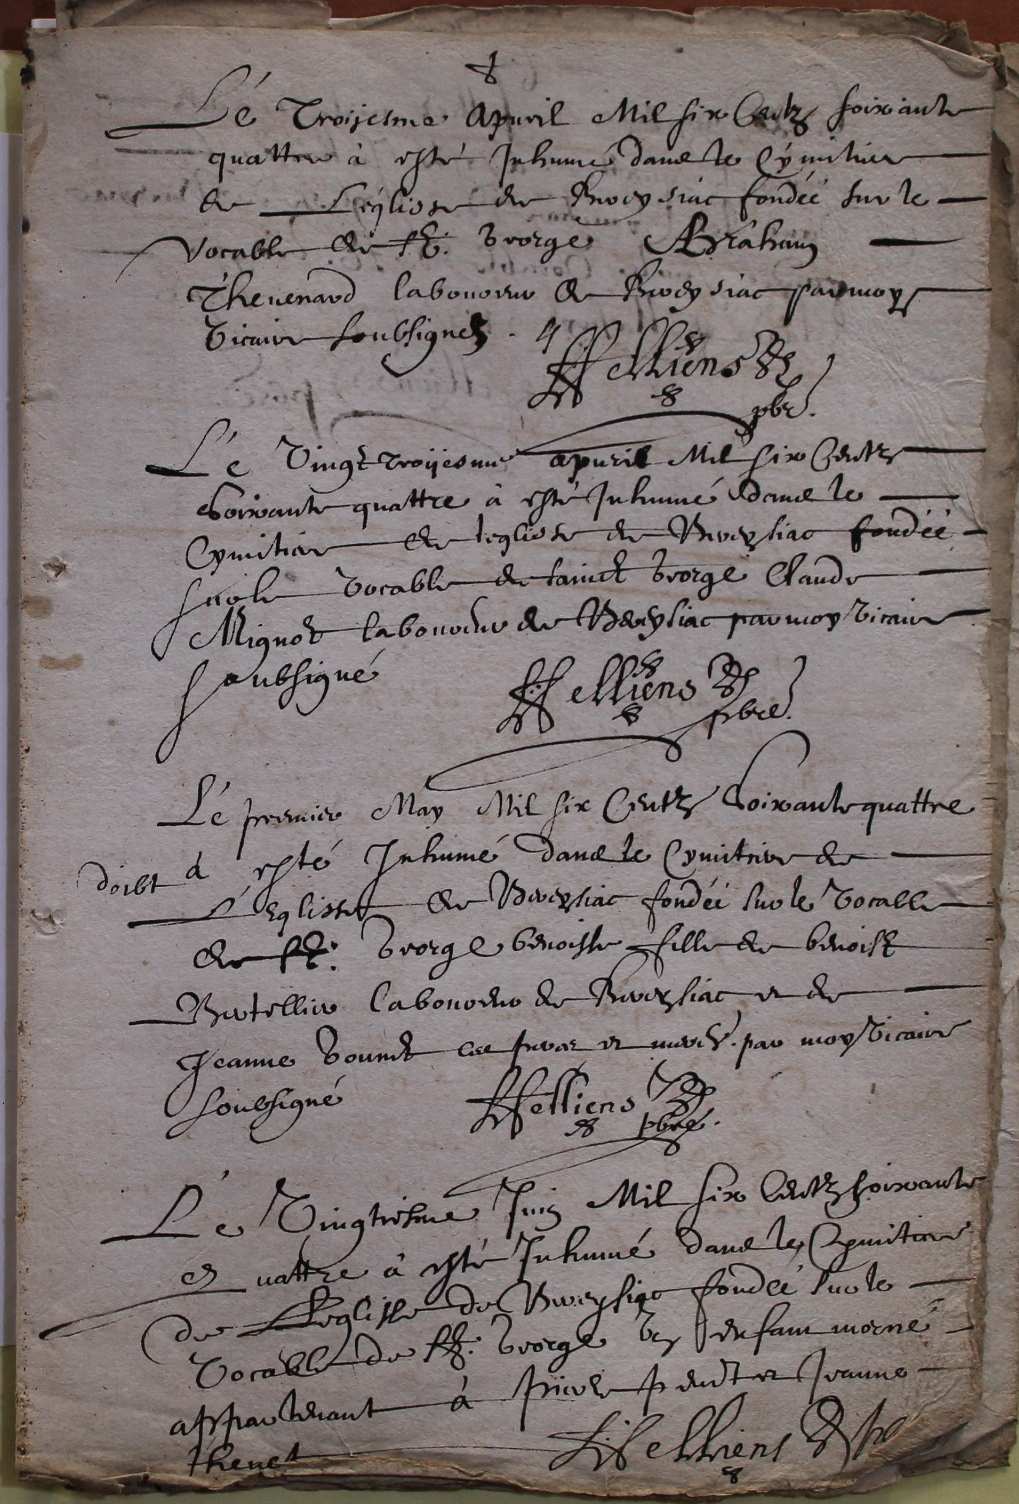 Lé Troijesme Apuril Mil six Centz soixante
quattre à esté Inhumé dans le Cÿmitiere
de L'églisse de Breysiac fondéé sur le
Vocable de st. George Abraham
Thevenard laboureur de Breysiac par moy
Vicaire soubsignez.
Helliens
pbre.
Lé Vingt troijesme apuril Mil six Centz
Soixante quattre à esté Inhumé dans le
Cymitiere de leglisse de Breysiac fondéé
sur le Vocable de sainct George Claude
Mignot laboureur de Breysiac par moy Vicaire
soubsigné
Helliens
pbre.
Lé premier May Mil six Centz Soixante quattre
doibt
à esté Inhumé dans le Cymitiere de
L'Eglisse de Breysiac fondéé sur le Vocalle
de st. George benoiste fille de benoist
laboureur de Breysiac et de
Jeanne par moy Vicaire
soubsigné
Helliens
pbre.
Le Vingtiesme Juin Mil six Centz soixante
quattre à esté Inhumé dans le Cymitiere
de L'eglisse de Breysiac fondéé sur le
Vocable de st. George Un enfam morné
appartenant à et Jeanne
thenet
Helliens